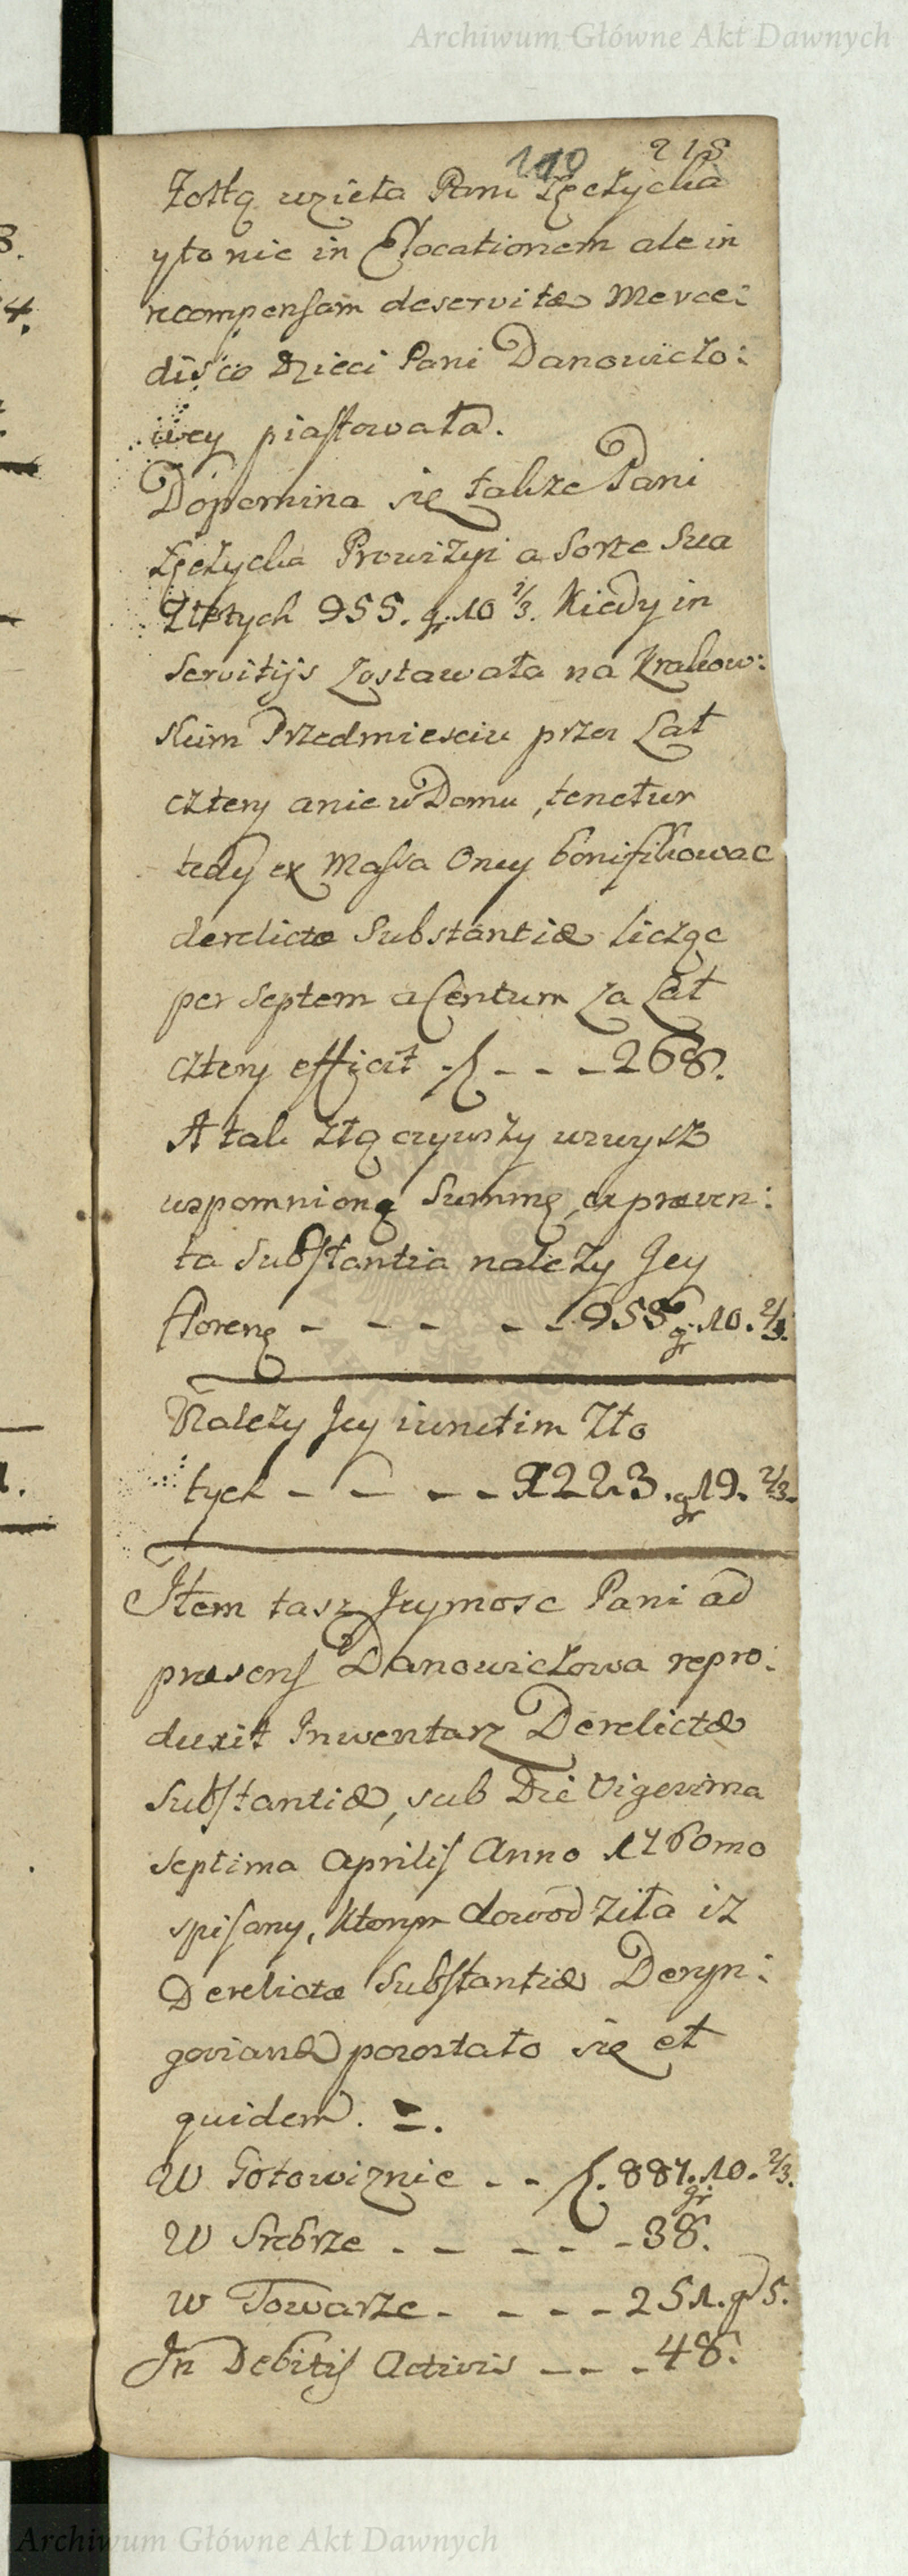 Archiwum Główne Akt Dawnych
210 218
Żołtą wzieła Pani Zęczycka
y to nie in Elocationem ale in
recompensam deservitæ Merce:
dis co Dzieci Pani Danowiczo:
wey piastowała.
Dopomina się także Pani
Zęczycka Prowizyi a Sorte Sua
Złłotych 955. gr. 10 2/3. Kiedy in
Servitijs zostawała na Krakow:
skim Przedmiesciu przez Lat
cztery a nie w Domu, tenetur
tedy ex Massa Oney bonifikowac
derelictæ Substantiæ licząc
per Septem a Centum za Lat
cztery efficit f. - - - 268.
A tak złączywszy wzwysz
wspomnioną Summę, ex præven:
ta Substantia należy Jey
floreng - - - - - 955 gr. 10. 2/3.
Należy Jey iunctim Zło
tych - - - - 1223. gr 19. 2/3.
Item tasz Jeymosc Pani ad
præsens Danowiczowa repro:
duxit Inwentarz Derelictæ
Substantiæ, sub Die Vigesima
Septima Aprilis Anno 1760mo
spisany, ktorym dowodziła iz
Derelictæ Substantiæ Deryn:
govianæ pozostało się et
quidem. =.
W Gotowiznie - - f. 887. gr 10. 2/3.
W Srebrze - - - - - 38.
W Towarze - - - - 251. gr 5.
In Debitis Activis - - - 48.
Archiwum Główne Akt Dawnych